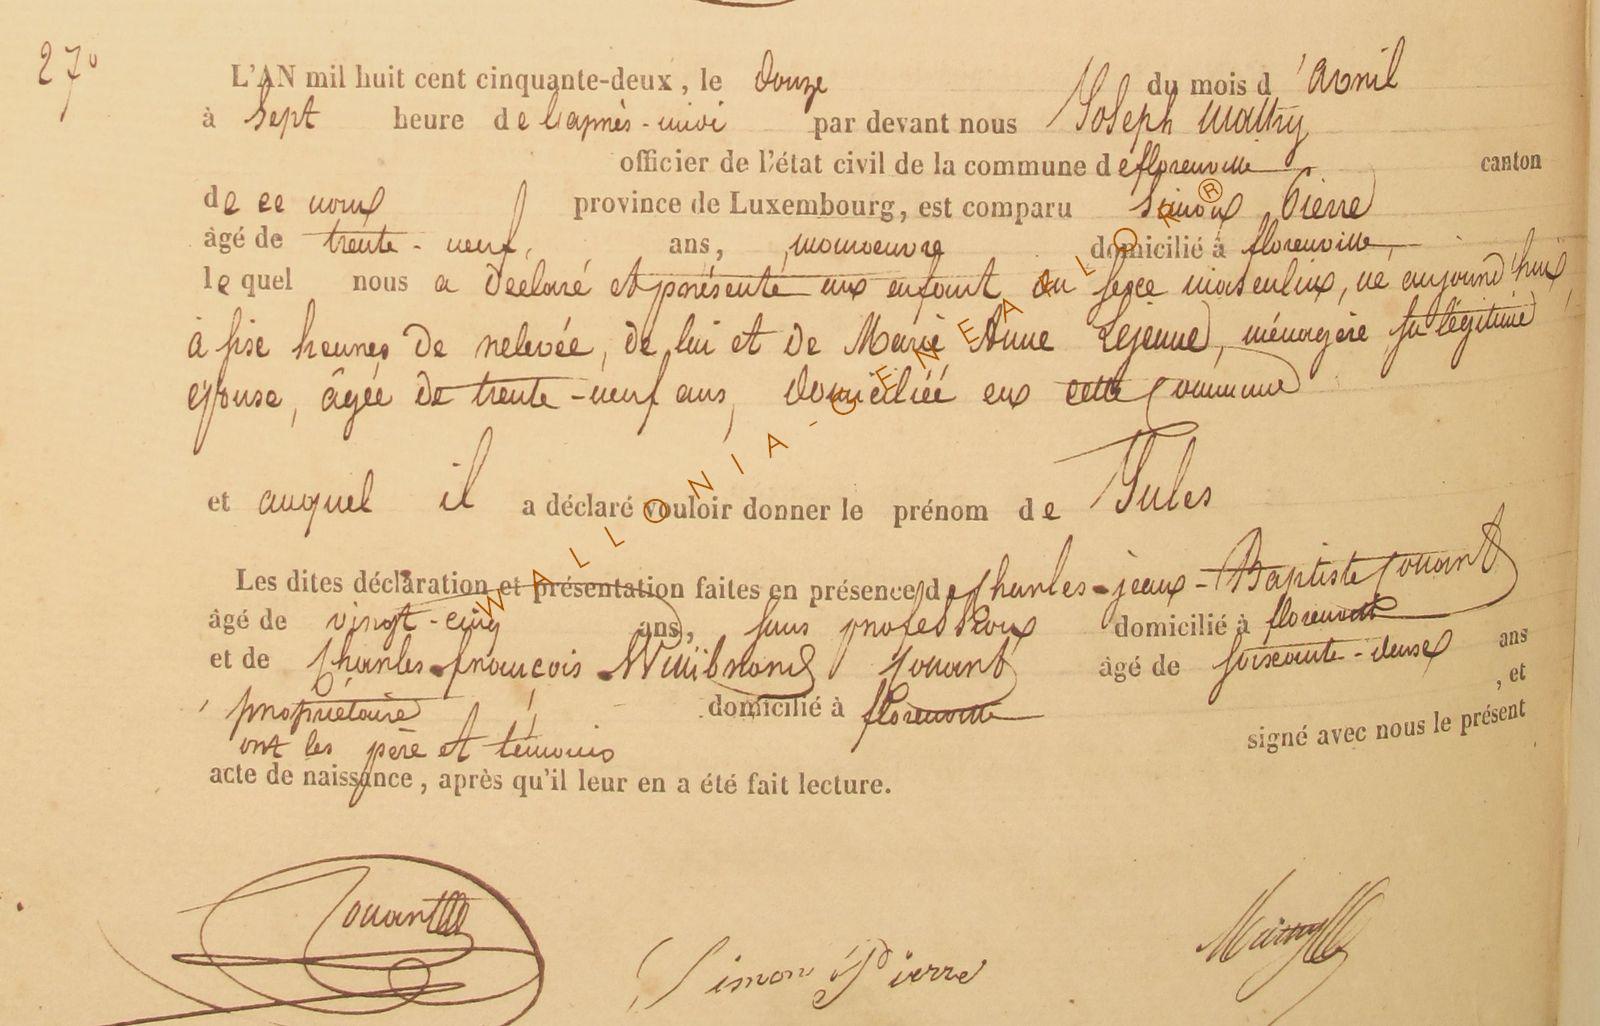 27°
L'AN mil huit cent cinquante-deux, le douze du mois d'avril
à sept heure de l'après-midi par devant nous Joseph Mathy
officier de l'état civil de la commune de florenville canton
de ce nom province de Luxembourg, est comparu Simon Pierre
âgé de trente-neuf, ans, manoeuvre domicilié à florenville,
lequel nous a declaré et présenté un enfant du sexe masculin, né aujourd'hui
à six heures de relevée, de lui et de Marie Anne Lejeune, ménagère sa légitime
épouse, âgée de trente-neuf ans, domiciliée en cette commune
et auquel il a déclaré vouloir donner le prénom de Jules
Les dites déclaration et présentation faites en présence de Charles-jean-Baptiste Jouant
âgé de vingt-cinq ans, sans profession domicilié à florenville
et de Charles-françois Jouant âgé de soixante-deux ans
propriétaire domicilié à florenville, et
ont les père et témoins signé avec nous le présent
acte de naissance, après qu'il leur en a été fait lecture.
Jouant Simon Pierre Mathy
WALLONIA-GENEALOR®